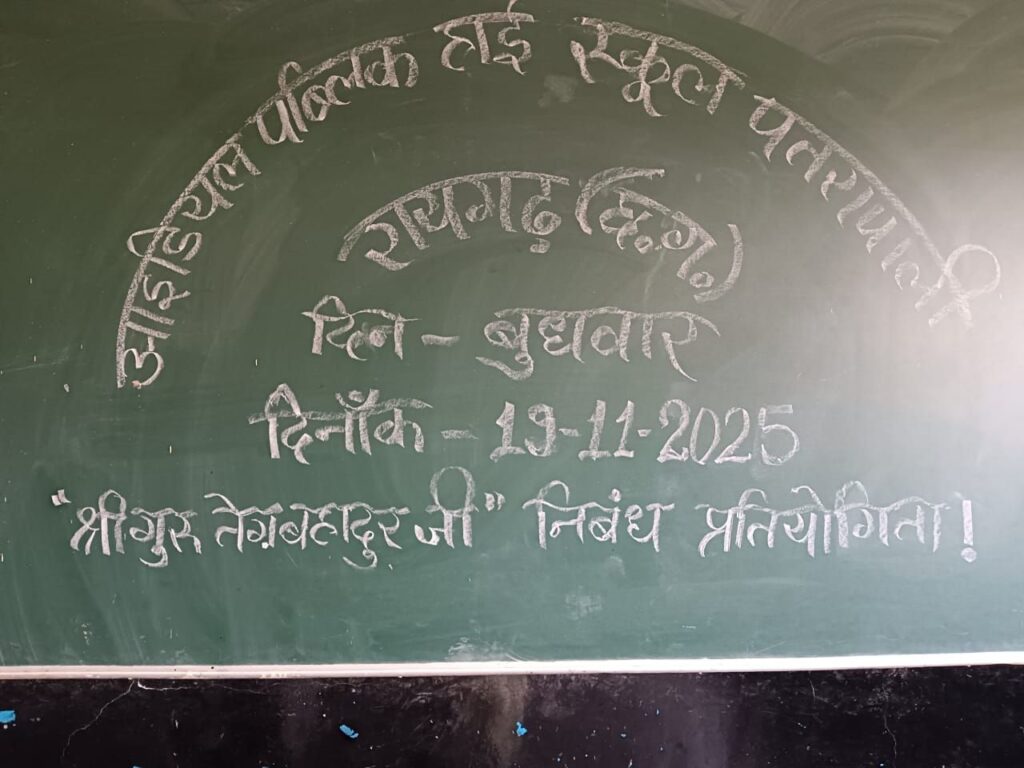 आइडियल पब्लिक हाई स्कूल पतरापाली
रायगढ़ (छ.ग.)
दिन - बुधवार
दिनाँक - 19-11-2025
"श्री गुरु तेग़बहादुर जी" निबंध प्रतियोगिता!